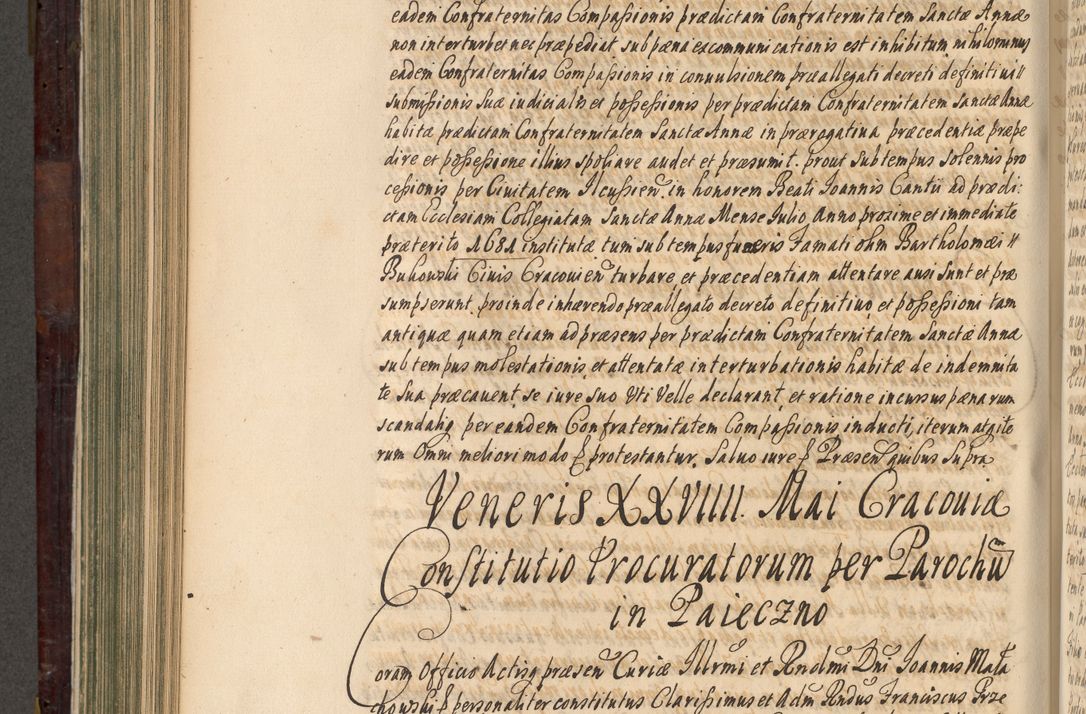 eadem Confraternitas Compaſsionis prædictam Confraternitatem Sanctæ Annæ
non interturbet nec præpediat sub pæna excommunicationis est inhibitum nihilominus
eadem Confraternitas Compaſsionis in convulsionem præallegati decreti definitiui //
submiſsionis suæ iudicialis et poſseſsionis per prædictam Confraternitatem Sanctæ Annæ
habitæ prædictam Confraternitatem Sanctæ Annæ in prærogatiua præcedentiæ præpe
dire et poſseſsione illius spoliare audet et præsumit. prout sub tempus solennis pro
ceſsionis per Ciuitatem Ilcussien. in honorem Beati Ioannis Cantii ad prædi:
ctam Ecclesiam Collegiatam Sanctæ Annæ Mense Iulio Anno proxime et immediate
præterito 1681 institutæ tum sub tempus funeris Famati olim Bartholomæi //
Bukowski Ciuis Cracouien turbare et præcedentiam attentare ausi sunt et præ
sumpserunt, proinde inhærendo præallegato decreto definitiuo et poſseſsioni tam
antiquæ quam etiam ad præsens per prædictam Confraternitatem Sanctæ Annæ
sub tempus molestationis et attentatæ interturbationis habitæ de indemnita
te sua præcauent, se iure suo Vti Velle declarant et ratione incursus pænarum
scandaliq per eandem Confraternitatem Compaſsionis inducti, iterum atq ite
rum Omni meliori modo protestantur. Saluo iure Præsen quibus Supra
Veneris XXVIIII. Mai Cracouiæ
Constitutio Procuratorum per Parochū
in Paieczno
Coram Officio Actisq præsen Curiæ Illrmi et Rndmi Dni Ioannis Mała
chowski personaliter constitutus Clariſsimus et Adm Rndus Franciscus Prze